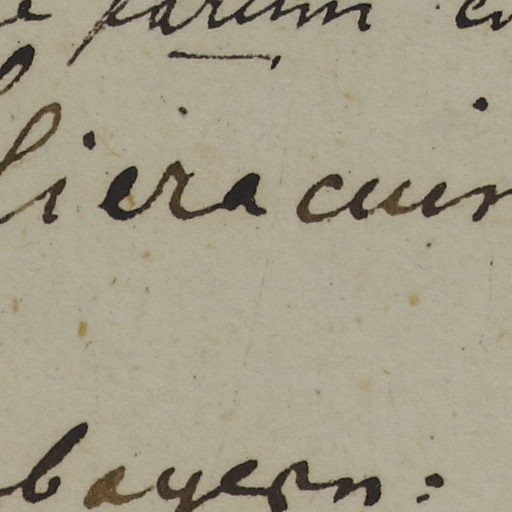 parum
hieracium
bayern: